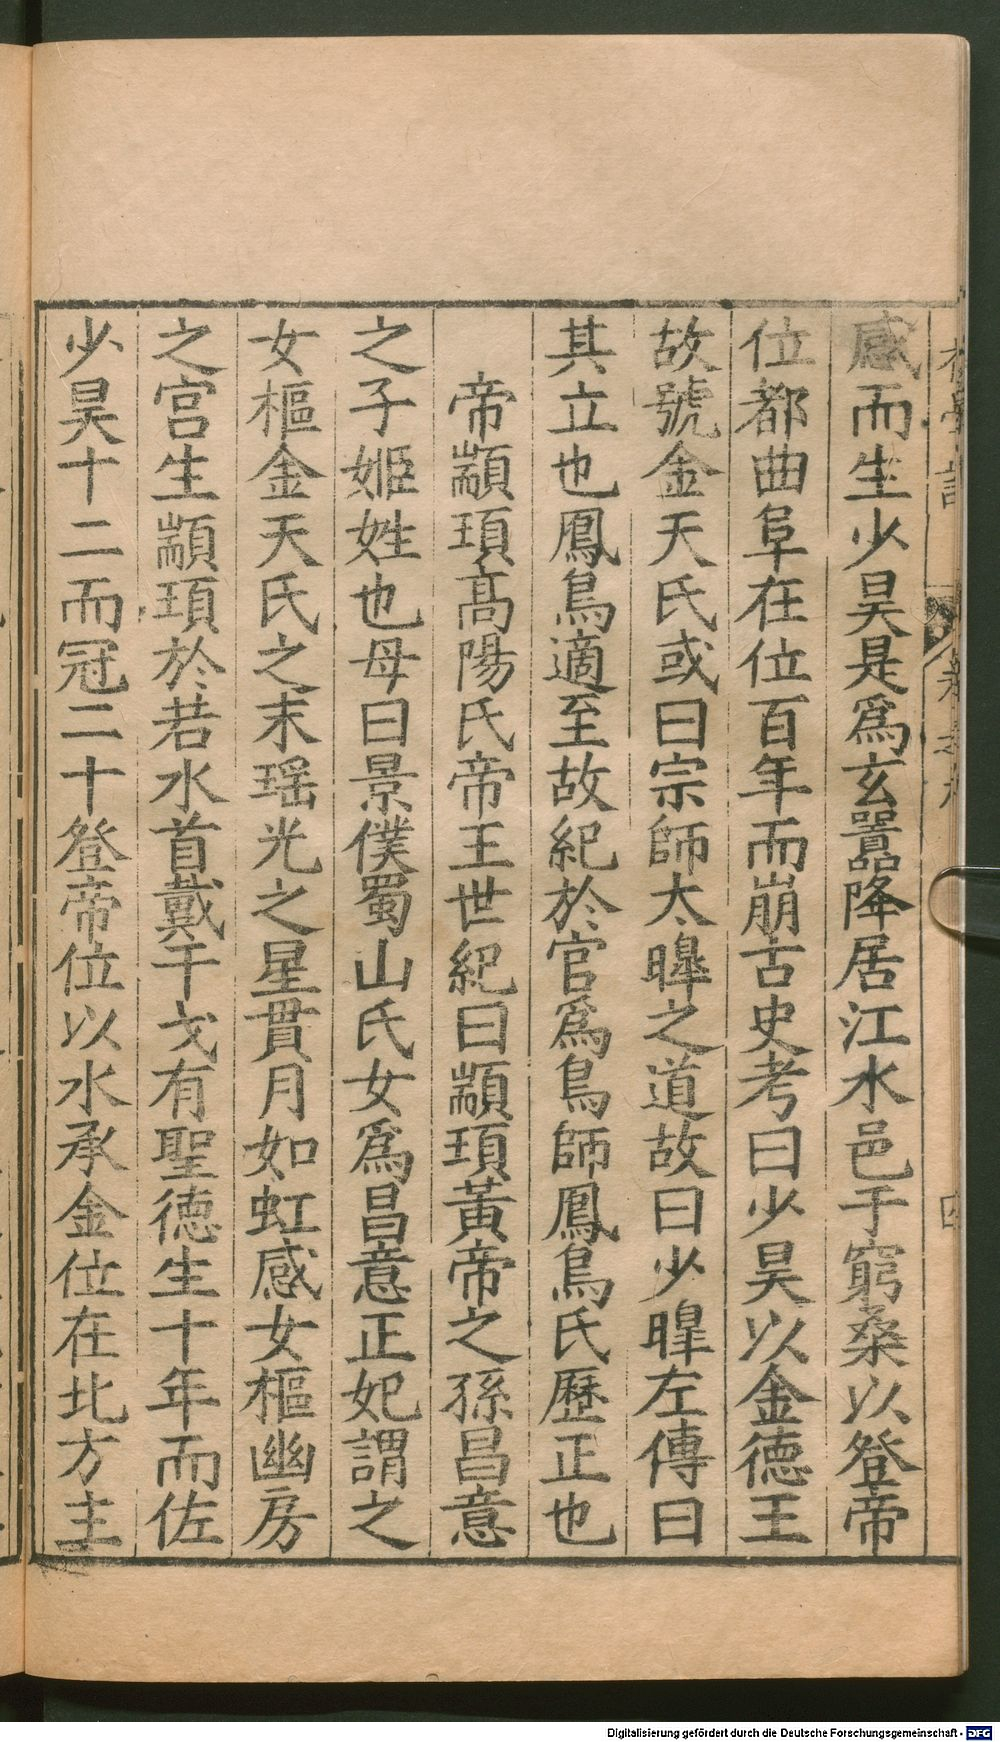 感而生少昊是爲玄囂降居江水邑于窮桑以登帝
位都曲阜在位百年而崩古史考曰少昊以金德王
故號金天氏或曰宗師太皥之道故曰少皥左傳曰
其立也鳳鳥適至故紀於官爲鳥師鳳鳥氏歷正也
帝顓頊高陽氏帝王世紀曰顓頊黃帝之孫昌意
之子姬姓也母曰景僕蜀山氏女爲昌意正妃謂之
女樞金天氏之末瑶光之星貫月如虹感女樞幽房
之宮生顓頊於若水首戴干戈有聖德生十年而佐
少昊十二而冠二十登帝位以水承金位在北方主
Digitalisierung gefördert durch die Deutsche Forschungsgemeinschaft - DFG